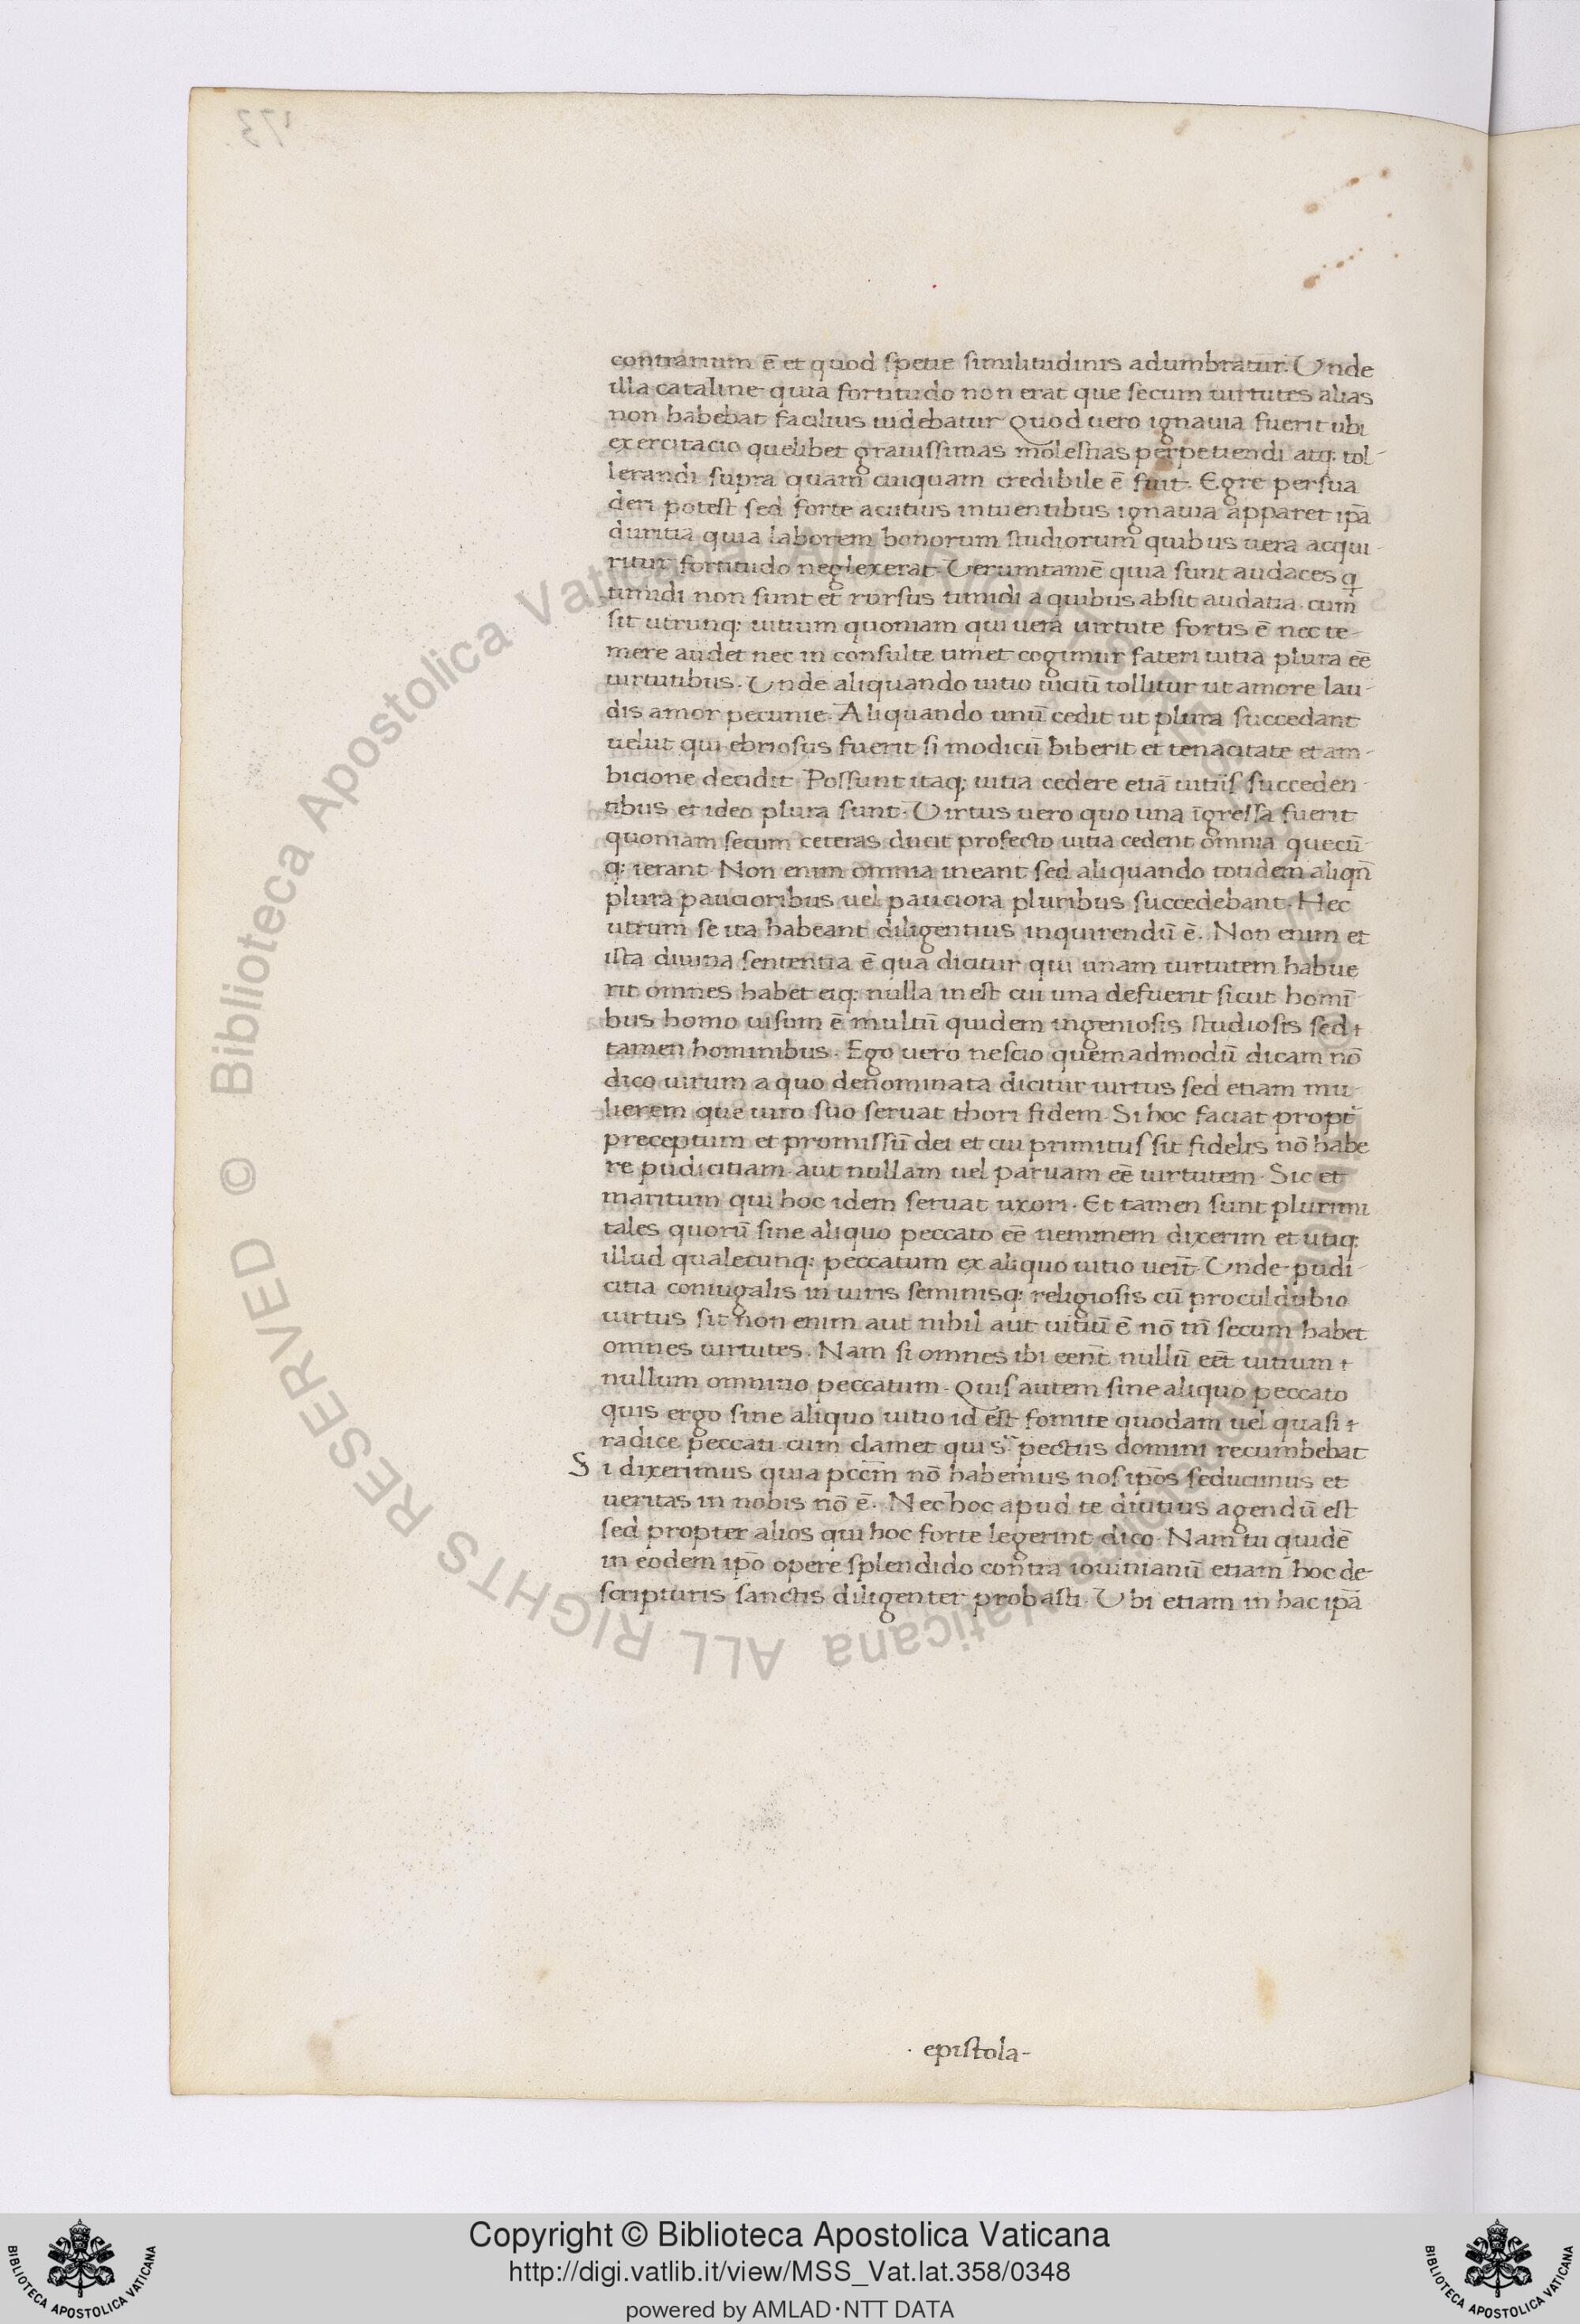 contrarium ē et quod spetie similitudinis adumbratur. Unde
illa cataline quia fortitudo non erat que secum uirtutes alias
non habebat facilius uidebatur Quod uero ignauia fuerit ubi
exercitacio quelibet grauissimas molestias perpetiendi atq; tol-
lerandi supra quam cuiquam credibile ē fuit. Egre persua
deri potest sed forte acutius intuentibus ignauia apparet ip̄a
duritia quia laborem bonorum studiorum quibus uera acqui-
ritur fortitudo neglexerat. Verumtamē quia sunt audaces q
timidi non sunt et rursus timidi a quibus absit audatia. cum
sit utrunq; uitium quoniam qui uera uirtute fortis ē nec te-
mere audet nec in consulte timet cogimur fateri uitia plura eē
uirtutibus. Unde aliquando uitio uiciū tollitur ut amore lau-
dis amor pecunie. Aliquando unū cedit ut plura succedant
uelut qui ebriosus fuerit si modicū biberit et tenacitate et am-
bicione decidit. Possunt itaq; uitia cedere etiā uitiis succeden-
tibus et ideo plura sunt. Virtus uero quo una īgressa fuerit
quoniam secum ceteras ducit profecto uitia cedent omnia quecū-
q; ierant. Non enim omnia ineant sed aliquando totidem aliqn̄
plura paucioribus uel pauciora pluribus succedebant. Hec
utrum se ita habeant diligentius inquirendū ē. Non enim et
ista diuina sententia ē qua dicitur qui unam uirtutem habue
rit omnes habet eiq; nulla inest cui una defuerit sicut homī-
bus homo uisum ē multū quidem ingeniosis studiosis sed
tamen hominibus. Ego uero nescio quemadmodū dicam nō
dico uirum a quo denominata dicitur uirtus sed etiam mu-
lierem que uiro suo seruat thori fidem. Si hoc faciat propt̄
preceptum et promissū dei et cui primitus sit fidelis nō habe
re pudicitiam aut nullam uel paruam eē uirtutem. Sic et
maritum qui hoc idem seruat uxori. Et tamen sunt plurimi
tales quorū sine aliquo peccato eē neminem dixerim et utiq;
illud qualecunq; peccatum ex aliquo uitio ueīt. Unde pudi-
citia coniugalis in uiris feminisq; religiosis cū proculdubio
uirtus sit non enim aut nihil aut uitiū ē nō tn̄ secum habet
omnes uirtutes. Nam si omnes ibi eent̄ nullū eēt uitium
nullum omnino peccatum. Quis autem sine aliquo peccato
quis ergo sine aliquo uitio id est fomite quodam uel quasi
radice peccati cum clamet qui s̄ pectus domini recumbebat
Si dixerimus quia pcc̄m nō habemus nos ip̄os seducimus et
ueritas in nobis nō ē. Nec hoc apud te diutius agendū est
sed propter alios qui hoc forte legerint dico. Nam tu quidē
in eodem ip̄o opere splendido contra iouinianū etiam hoc de
scripturis sanctis diligenter probasti. Ubi etiam in hac ip̄a
· epistola-
Copyright © Biblioteca Apostolica Vaticana
http://digi.vatlib.it/view/MSS_Vat.lat.358/0348
powered by AMLAD·NTT DATA
BIBLIOTECA APOSTOLICA VATICANA
BIBLIOTECA APOSTOLICA VATICANA
© Biblioteca Apostolica Vaticana ALL RIGHTS RESERVED